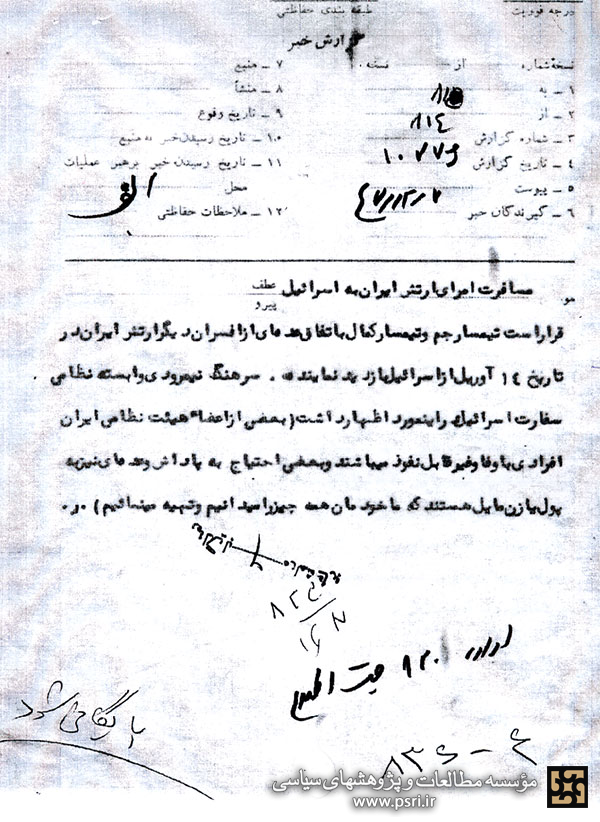 درجه فوریت طبقه بندی حفاظتی
گزارش خبر
نسخه شماره از نسخه
۱ ـ به
۲ ـ از ۸۱٤
۳ ـ شماره گزارش
٤ ـ تاریخ گزارش
۵ ـ پیوست
۶ ـ گیرندگان خبر
۷ ـ منبع
۸ ـ منشأ
۹ ـ تاریخ وقوع
۱۰ ـ تاریخ رسیدن خبر به منبع
۱۱ ـ تاریخ رسیدن خبر برهبر عملیات
محل
۱۲ ـ ملاحظات حفاظتی
الف
مسافرت امرای ارتش ایران به اسرائیل
عطف
پیرو
قرار است تیمسار جم و تیمسار کمال باتفاق عده‌ای از افسران دیگر ارتش ایران در
تاریخ ۱٤ آوریل از اسرائیل بازدید نمایند . سرهنگ نیمرودی وابسته نظامی
سفارت اسرائیل در اینمورد اظهار داشت ( بعضی از اعضاء هیئت نظامی ایران
افرادی با وفا و غیر قابل نفوذ میباشند و بعضی احتیاج به پاداش و عده‌ای نیز به
پول یا زن مایل هستند که ما خودمان همه چیز را میدانیم و تهیه مینمائیم ) . ر .
بایگانی شود
مؤسسه مطالعات و پژوهشهای سیاسی
www.psri.ir